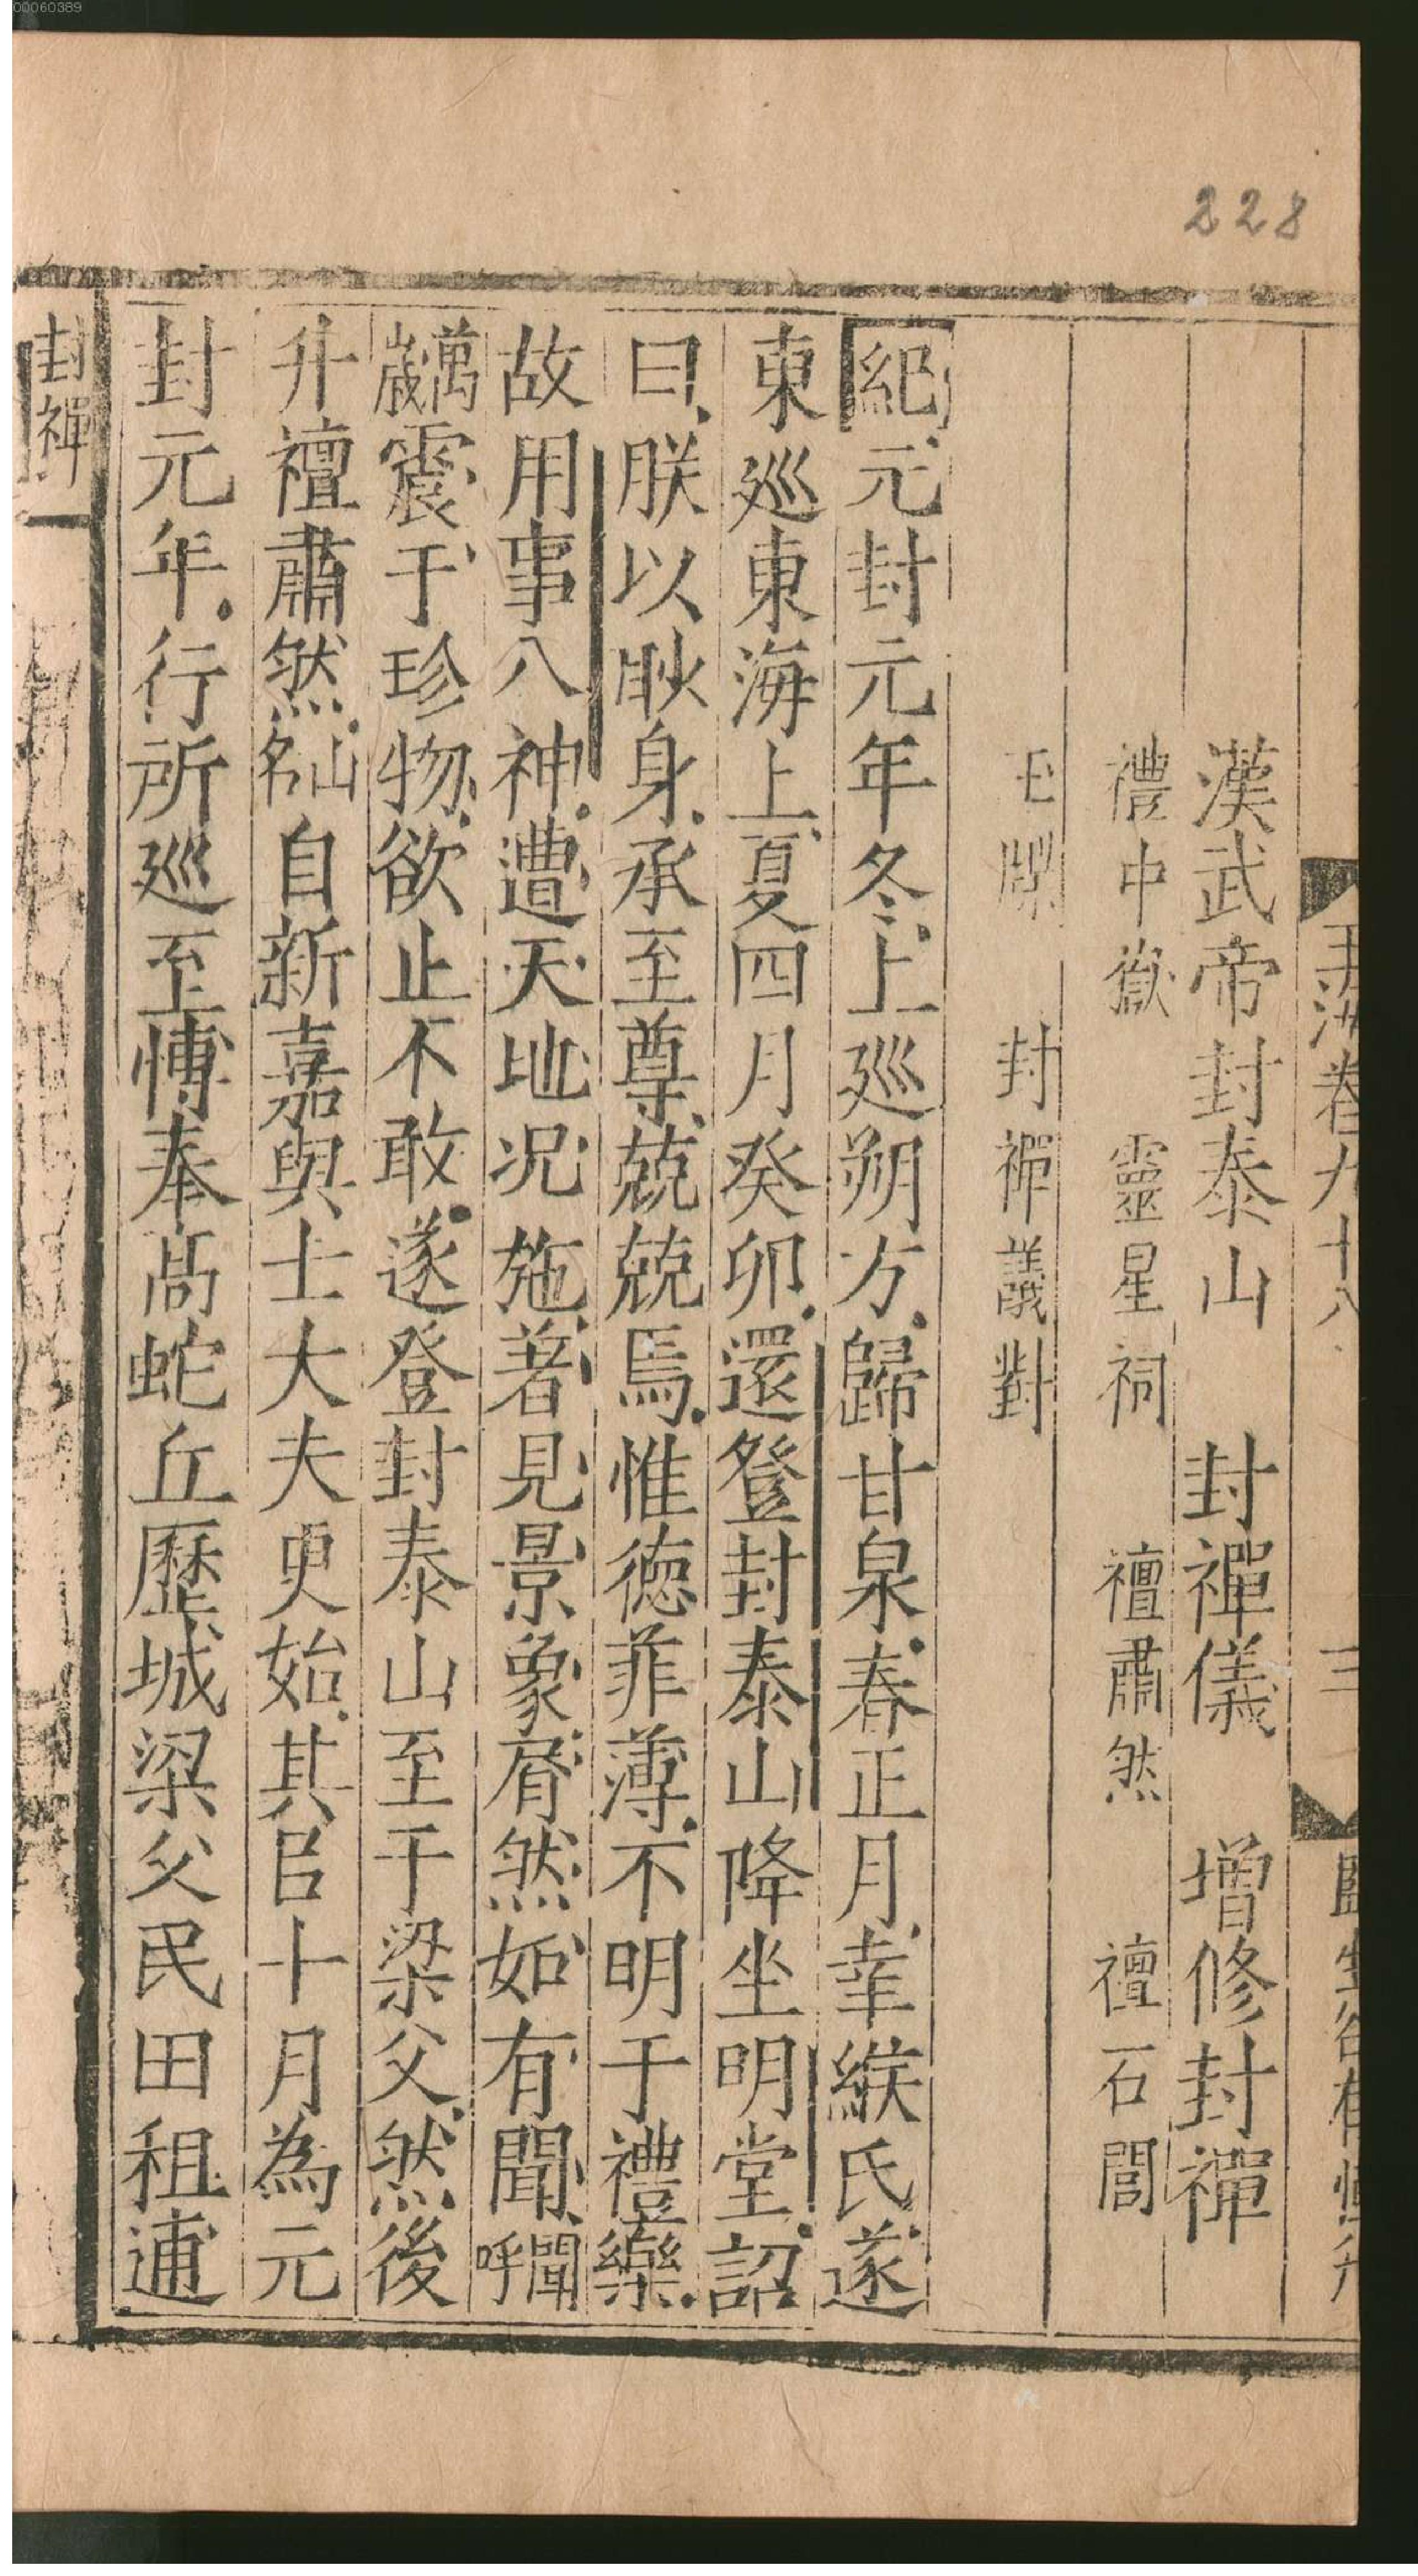 00060389
228
玉海卷九十八 三
漢武帝封泰山 封禪儀 增修封禪
禮中嶽 靈星祠 禪肅然 禪石閭
玉牒 封禪議對
紀元封元年冬上廵朔方歸甘泉春正月幸緱氏遂
東廵東海上夏四月癸卯還登封泰山降坐明堂詔
曰朕以眇身承至尊兢兢焉惟徳菲薄不明于禮樂
故用事八神遭天地况施著見景象屑然如有聞聞呼
萬歲震于珍物欲止不敢遂登封泰山至于梁父然後
升禪肅然山名自新嘉與士大夫更始其㠯十月為元
封元年行所廵至博奉高蛇丘歷城梁父民田租逋
封禪